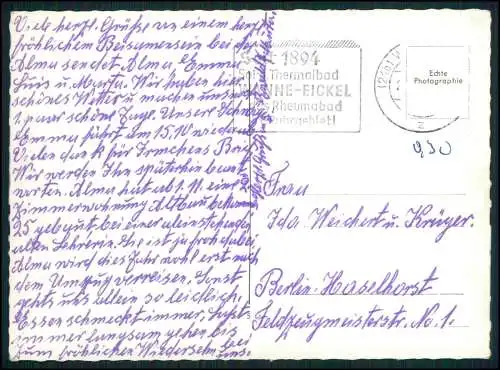 Viele herzl. Grüße von einem herz
fröhlichem Beisamensein bei der
Alma sendet. Alma Emma
Luis u. Marta. Wir haben hier
schönes Wetter u. machen uns
1 paar schöne Tage. Unsere
Emma fährt am 15.10 wieder ab.
Vielen dank für Irmchens Brief
Wir werden Ihn späterhin beant
worten. Alma hat ab 1. 11. eine
2 Zimmerwohnung Altbau bekommen
bei einer alleinstehenden
alten Lehrerin. Sie ist ja froh dabei
Alma wird dies Jahr wohl erst nach
dem Umzug verreisen. Sonst
gehts uns allein so leidlich.
Essen schmeckt immer,
immer langsam gehen bis
zum fröhlichen Wiedersehn bei
uns.
1894
Thermalbad
WANNE-EICKEL
Rheumabad
Echte
Photographie
930
Frau
Ida Weichert u. Krüger.
Berlin-Haselhorst
Feldzeugmeisterstr. No. 1.